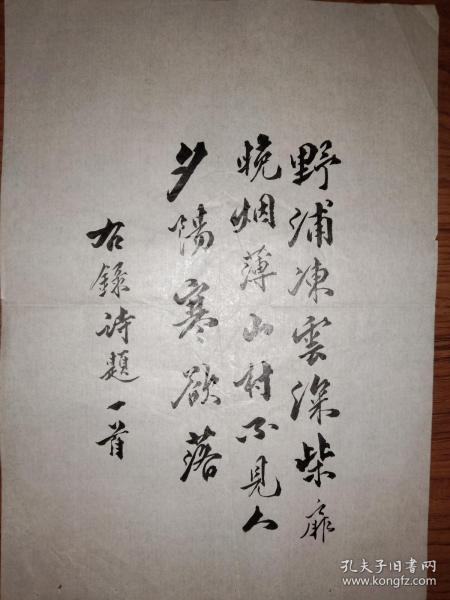 野浦凍雲深柴扉
晚烟薄山村不見人
夕陽寒欲落
右錄詩題一首
孔夫子旧书网
www.kongfz.com